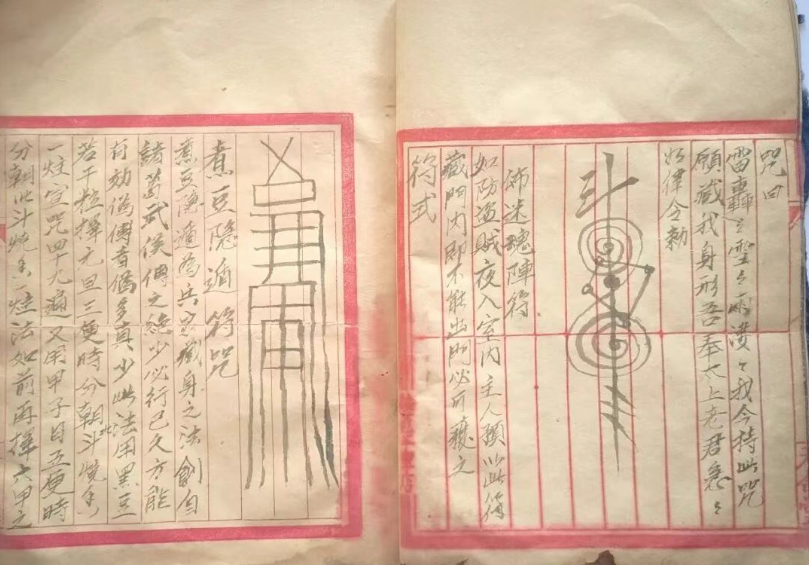 咒曰
雷轟々雲々霧濛々我今持此咒
願藏我身形吾奉太上老君急々
如律令勅
佈迷魂陣符
如防盜賊夜入室內主人預以此符
藏門內即不能出門必可獲之
符式
煮豆隐遁符咒
煮豆隐遁為兵家藏身之法創自
諸葛武侯傳之絕少必行已久方能
有効偽傳者偽多真少此法用黑豆
若干粒擇元旦三更時分朝斗燒香
一炷宣咒四十九遍又用甲子日五更時
分朝北斗燒香一炷法如前再擇六甲之